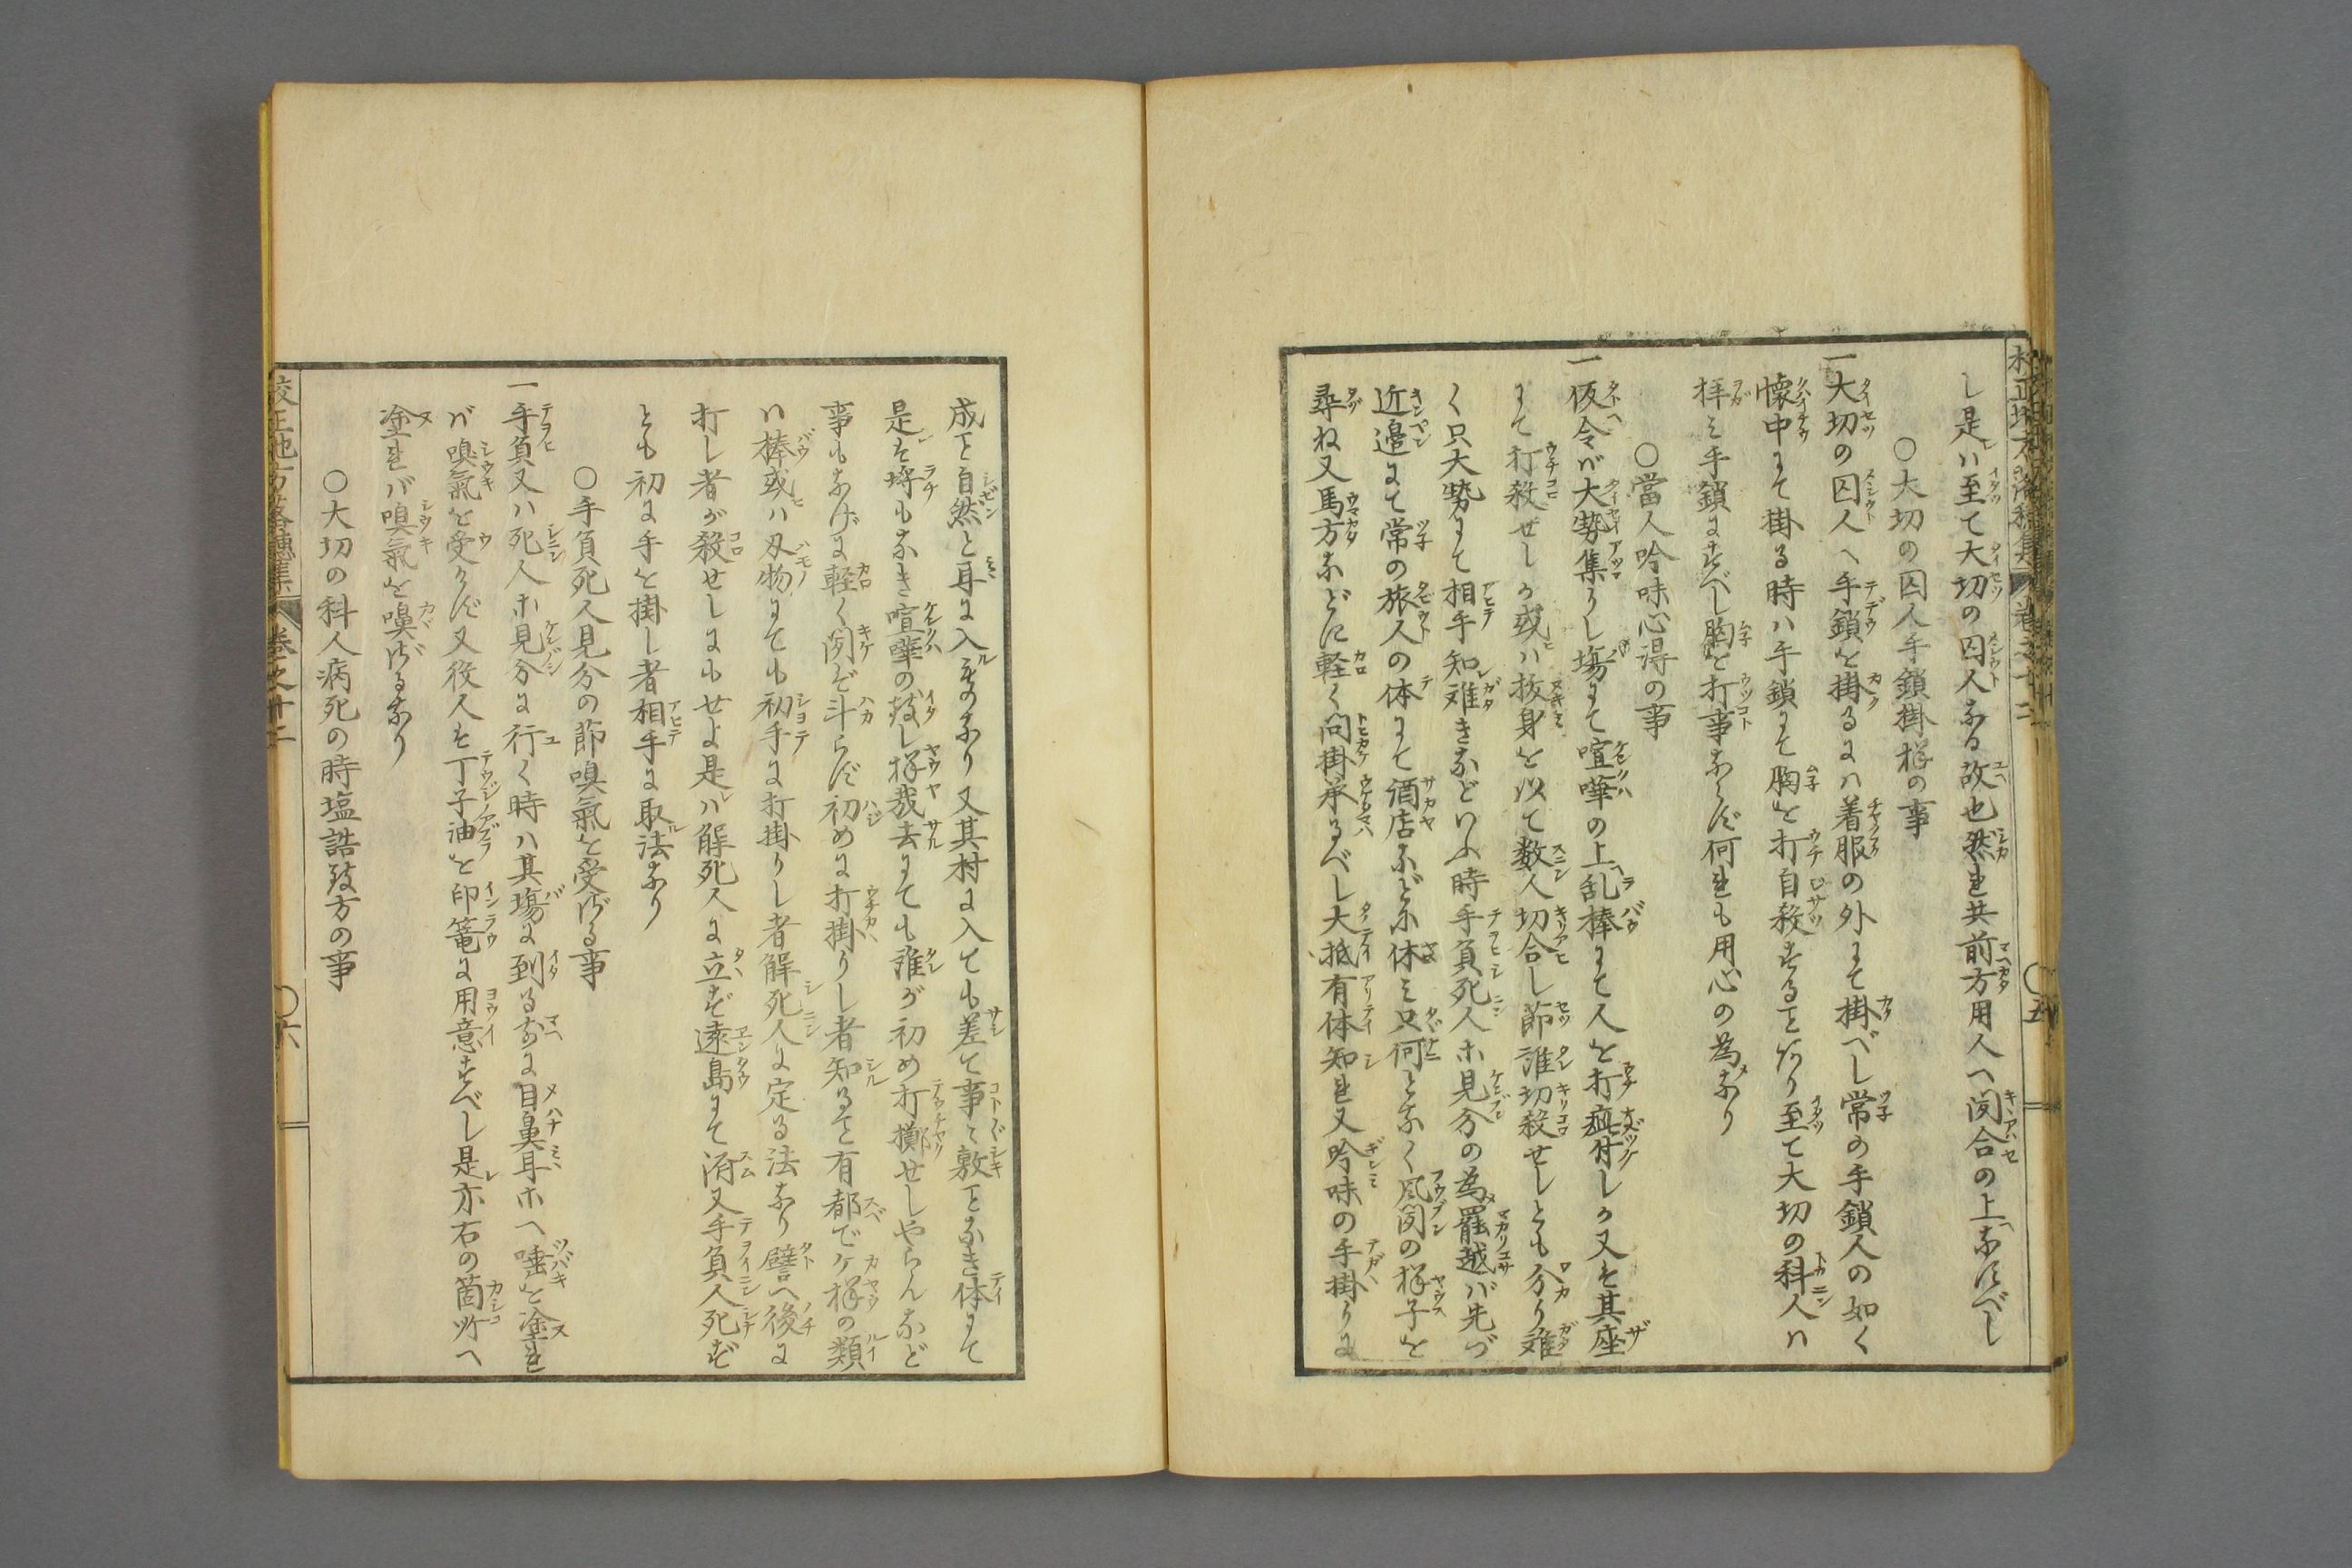 し是ハ至て大切の囚人なる故也然れ共前方用人へ聞合の上なすべし
○大切の囚人手鎖掛様の事
一大切の囚人へ手鎖を掛るにハ着服の外にて掛べし常の手鎖人の如く
懐中にて掛る時ハ手鎖にて胸を打自殺することあり至て大切の科人ハ
拝ミ手鎖にすべし胸を打事ならず何れも用心の為なり
○當人吟味心得の事
一仮令バ大勢集りし場にて喧嘩の上乱棒にて人を打疵付しか又は其座
にて打殺せしか或ハ抜身を以て数人切合し節誰切殺せしとも分り難
く只大勢にて相手知難きなどいふ時手負死人等見分の為罷越バ先づ
近邉にて常の旅人の体にて酒店など休ミ只何となく風聞の様子を
尋ね又馬方などに軽く問掛承るべし大抵有体知れ又吟味の手掛りに
成こと自然と耳に入ものなり又其村に入ても差て事〻敷ことなき体にて
是は埒もなき喧嘩の致し様哉去にても誰が初め打擲せしやらんなど
事もなげに軽く聞ぞ斗らず初めに打掛りし者知ること有都てケ様の類
ハ棒或ハ刄物にても初手に打掛りし者解死人に定る法なり譬へ後に
打し者が殺せしにもせよ是ハ解死人に立ず遠島にて済又手負人死ず
とも初に手を掛し者相手に取法なり
○手負死人見分の節嗅氣を受ざる事
一手負又ハ死人等見分に行く時ハ其場に到るまへに目鼻耳等へ唾を塗れ
バ嗅氣を受けず又役人は丁子油を印篭に用意すべし是亦右の箇所へ
塗れバ嗅氣を嗅ざるなり
○大切の科人病死の時塩詰致方の事
校正地方落穂集 巻之十二 ○六